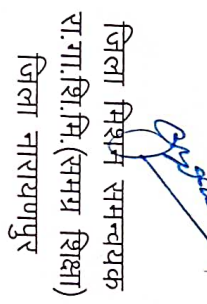 जिला मिशन समन्वयक
रा.गा.शि.मि.(समग्र शिक्षा)
जिला नारायणपुर